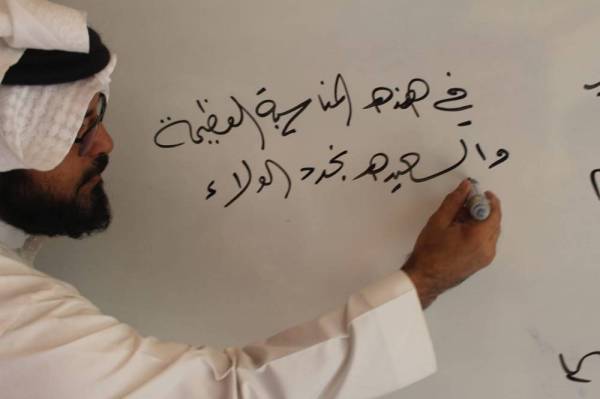 في هذه المناسبة العظيمة
والسعيده نجدد الولاء